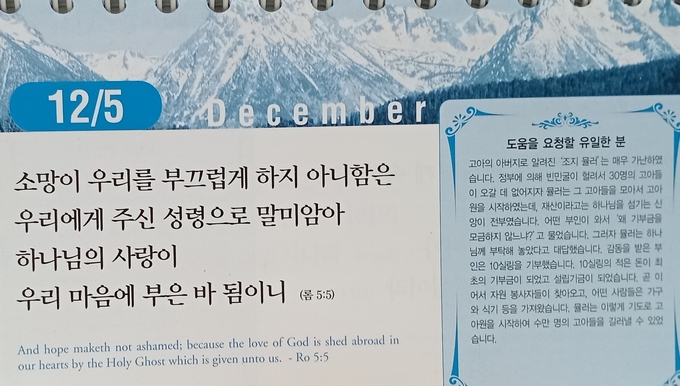 12/5
December
소망이 우리를 부끄럽게 하지 아니함은
우리에게 주신 성령으로 말미암아
하나님의 사랑이
우리 마음에 부은 바 됨이니 (롬 5:5)
And hope maketh not ashamed; because the love of God is shed abroad in
our hearts by the Holy Ghost which is given unto us. - Ro 5:5
도움을 요청할 유일한 분
고아의 아버지로 알려진 '조지 뮬러'는 매우 가난하였
습니다. 정부에 의해 빈민굴이 헐려서 30명의 고아들
이 오갈 데 없어지자 뮬러는 그 고아들을 모아서 고아
원을 시작하였는데, 재산이라고는 하나님을 섬기는 신
앙이 전부였습니다. 어떤 부인이 와서 '왜 기부금을
모금하지 않느냐?'고 물었습니다. 그러자 뮬러는 하나
님께 부탁해 놓았다고 대답했습니다. 감동을 받은 부
인은 10실링을 기부했습니다. 10실링의 적은 돈이 최
초의 기부금이 되었고 설립기금이 되었습니다. 곧 이
어서 자원 봉사자들이 찾아오고, 어떤 사람들은 가구
와 식기 등을 가져왔습니다. 뮬러는 이렇게 기도로 고
아원을 시작하여 수만 명의 고아들을 길러낼 수 있었
습니다.